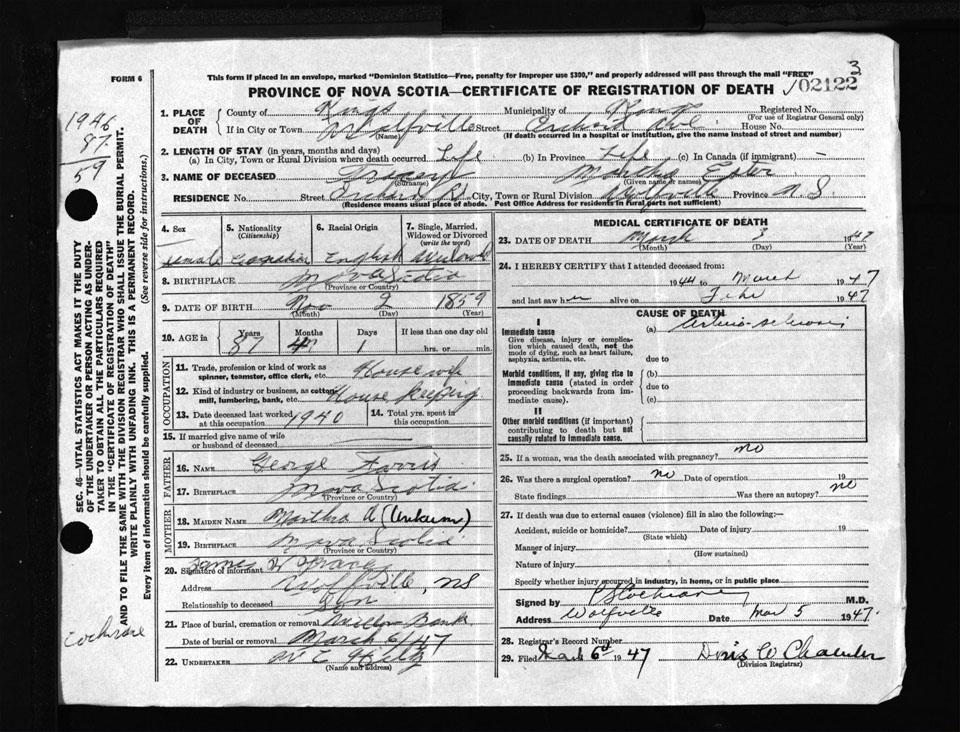 FORM 6
This form if placed in an envelope, marked "Dominion Statistics—Free, penalty for improper use $300," and properly addressed will pass through the mail "FREE"
3
PROVINCE OF NOVA SCOTIA—CERTIFICATE OF REGISTRATION OF DEATH
02122
1. PLACE OF DEATH
County of Kings Municipality of Kings Registered No.
(For use of Registrar General only)
If in City or Town Wolfville Street Orchard Ave. House No.
(Name) (If death occurred in a hospital or institution, give the name instead of street and number)
2. LENGTH OF STAY (in years, months and days)
(a) In City, Town or Rural Division where death occurred Life (b) In Province Life (c) In Canada (if immigrant) —
3. NAME OF DECEASED Martha
(Surname) (Given name or names)
RESIDENCE No. Street Orchard City, Town or Rural Division Wolfville Province N.S.
(Residence means usual place of abode. Post Office Address for residents in Rural parts not sufficient)
4. Sex 5. Nationality (Citizenship) 6. Racial Origin 7. Single, Married, Widowed or Divorced (write the word)
Female Canadian English Widowed
8. BIRTHPLACE Nova Scotia
(Province or Country)
9. DATE OF BIRTH Nov 2 1859
(Month) (Day) (Year)
10. AGE in Years Months Days If less than one day old
87 4 1 hrs. or min.
OCCUPATION
11. Trade, profession or kind of work as spinner, teamster, office clerk, etc. House wife
12. Kind of industry or business, as cotton mill, lumbering, bank, etc. House keeping
13. Date deceased last worked at this occupation 1940 14. Total yrs. spent in this occupation
15. If married give name of wife or husband of deceased
FATHER
16. NAME George
17. BIRTHPLACE Nova Scotia
(Province or Country)
MOTHER
18. MAIDEN NAME Martha A (Unknown)
19. BIRTHPLACE Nova Scotia
(Province or Country)
20. Signature of informant James W
Address Wolfville, NS
Relationship to deceased Son
21. Place of burial, cremation or removal Willow Bank
Date of burial or removal March 6/47
22. UNDERTAKER
(Name and address)
MEDICAL CERTIFICATE OF DEATH
23. DATE OF DEATH March 3 1947
(Month) (Day) (Year)
24. I HEREBY CERTIFY that I attended deceased from:
1944 to March 1947
and last saw her alive on Feb 1947
CAUSE OF DEATH
I
Immediate cause (a)
Give disease, injury or complication which caused death, not the mode of dying, such as heart failure, asphyxia, asthenia, etc.
due to
Morbid conditions, if any, giving rise to immediate cause (stated in order proceeding backwards from immediate cause).
(b)
due to
(c)
II
Other morbid conditions (if important) contributing to death but not causally related to immediate cause.
25. If a woman, was the death associated with pregnancy? no
26. Was there a surgical operation? no Date of operation 19
State findings Was there an autopsy? no
27. If death was due to external causes (violence) fill in also the following:—
Accident, suicide or homicide? Date of injury 19
(State which)
Manner of injury
(How sustained)
Nature of injury
Specify whether injury occurred in industry, in home, or in public place
Signed by Cochrane M.D.
Address Wolfville Date Mar 5 1947.
28. Registrar's Record Number
29. Filed March 6th 1947
(Division Registrar)
1946
87
59
Cochrane
SEC. 46—VITAL STATISTICS ACT MAKES IT THE DUTY
OF THE UNDERTAKER OR PERSON ACTING AS UNDER-
TAKER TO OBTAIN ALL THE PARTICULARS REQUIRED
IN THE "CERTIFICATE OF REGISTRATION OF DEATH"
AND TO FILE THE SAME WITH THE DIVISION REGISTRAR WHO SHALL ISSUE THE BURIAL PERMIT.
WRITE PLAINLY WITH UNFADING INK. THIS IS A PERMANENT RECORD.
Every item of information should be carefully supplied. (See reverse side for instructions.)